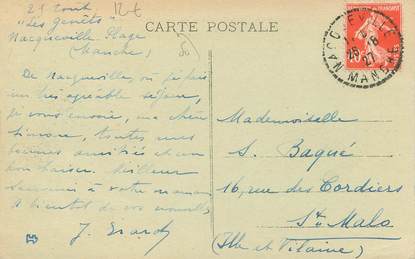 21 août 12€
"Les genêts"
Nacqueville Plage
(Manche)
CARTE POSTALE
De Nacqueville, où je fais
un très agréable séjour,
je vous envoie, ma chère
Simone, toutes mes
bonnes amitiés et un
bon baiser. Meilleur
souvenir à votre maman
A bientôt de vos nouvelles
NACQUEVILLE
MANCHE
25 -8
27
Mademoiselle
S. Baqué
16, rue des Cordiers
St. Malo
(Ille et Vilaine)